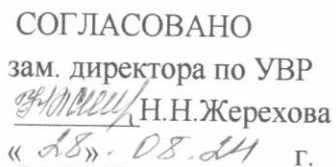 СОГЛАСОВАНО
зам. директора по УВР
Н.Н.Жерехова
«28». 08.24 г.